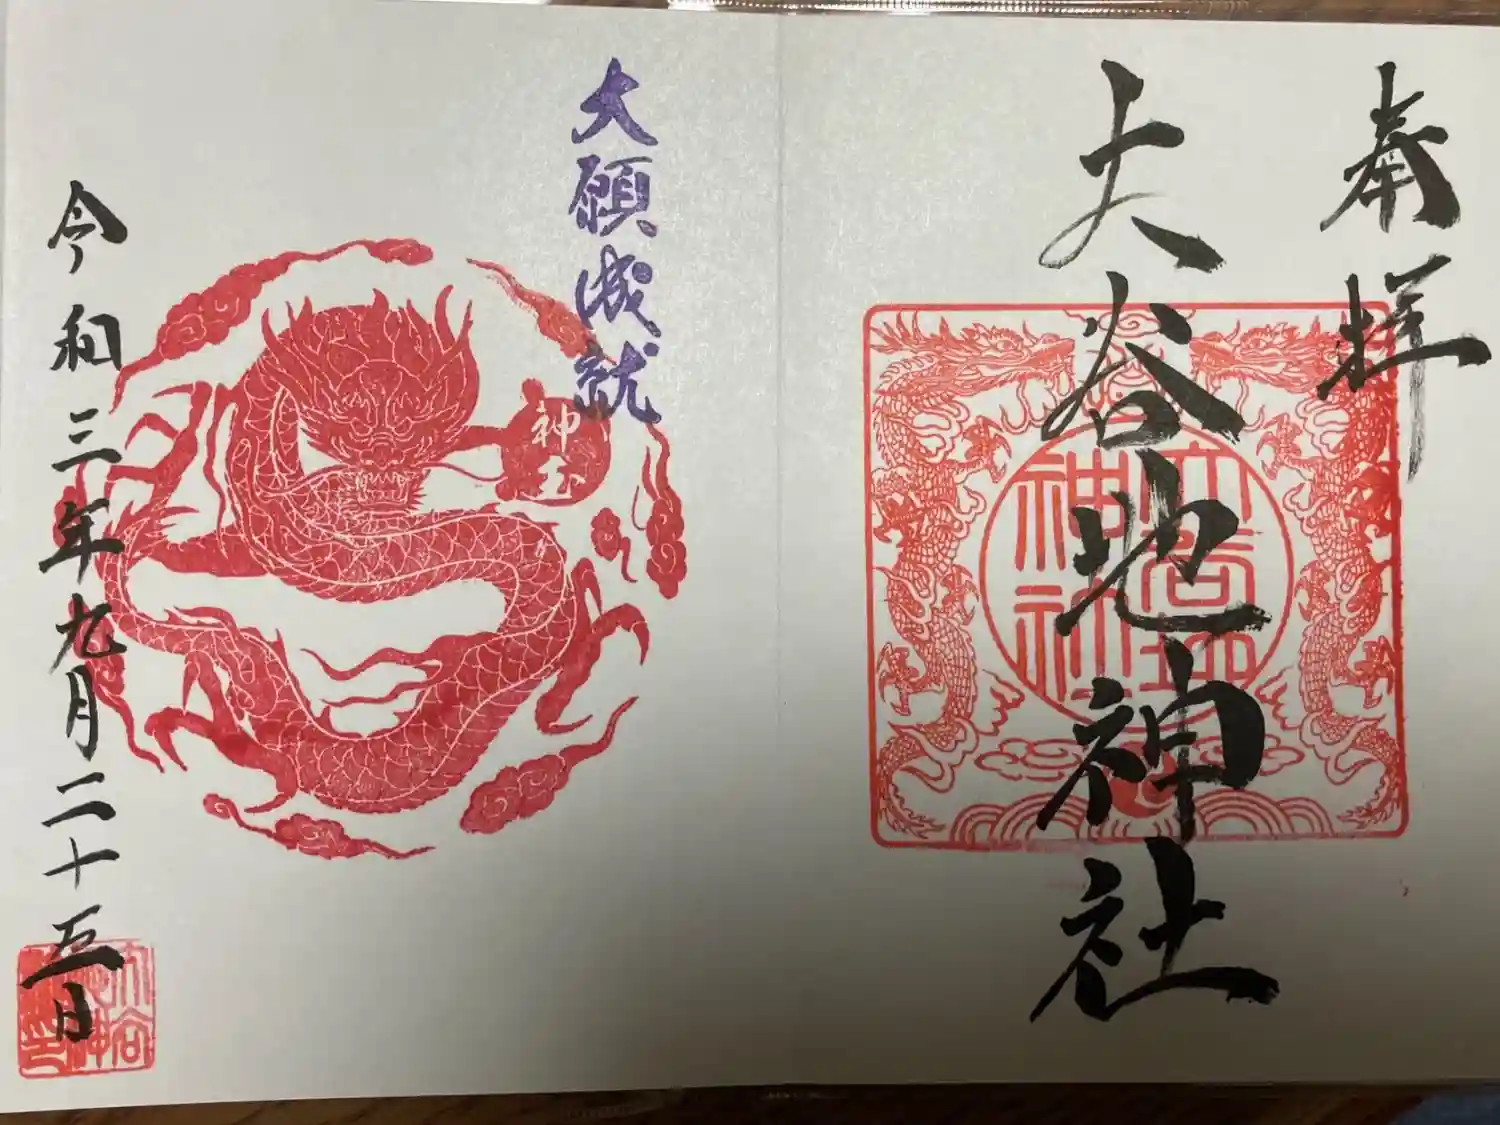 奉拝
大谷地神社
大谷地
神社
大願成就
神玉
令和三年九月二十五日